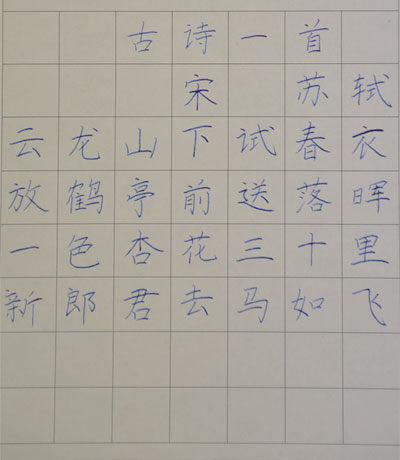 古诗一首
宋 苏轼
云龙山下试春衣
放鹤亭前送落晖
一色杏花三十里
新郎君去马如飞